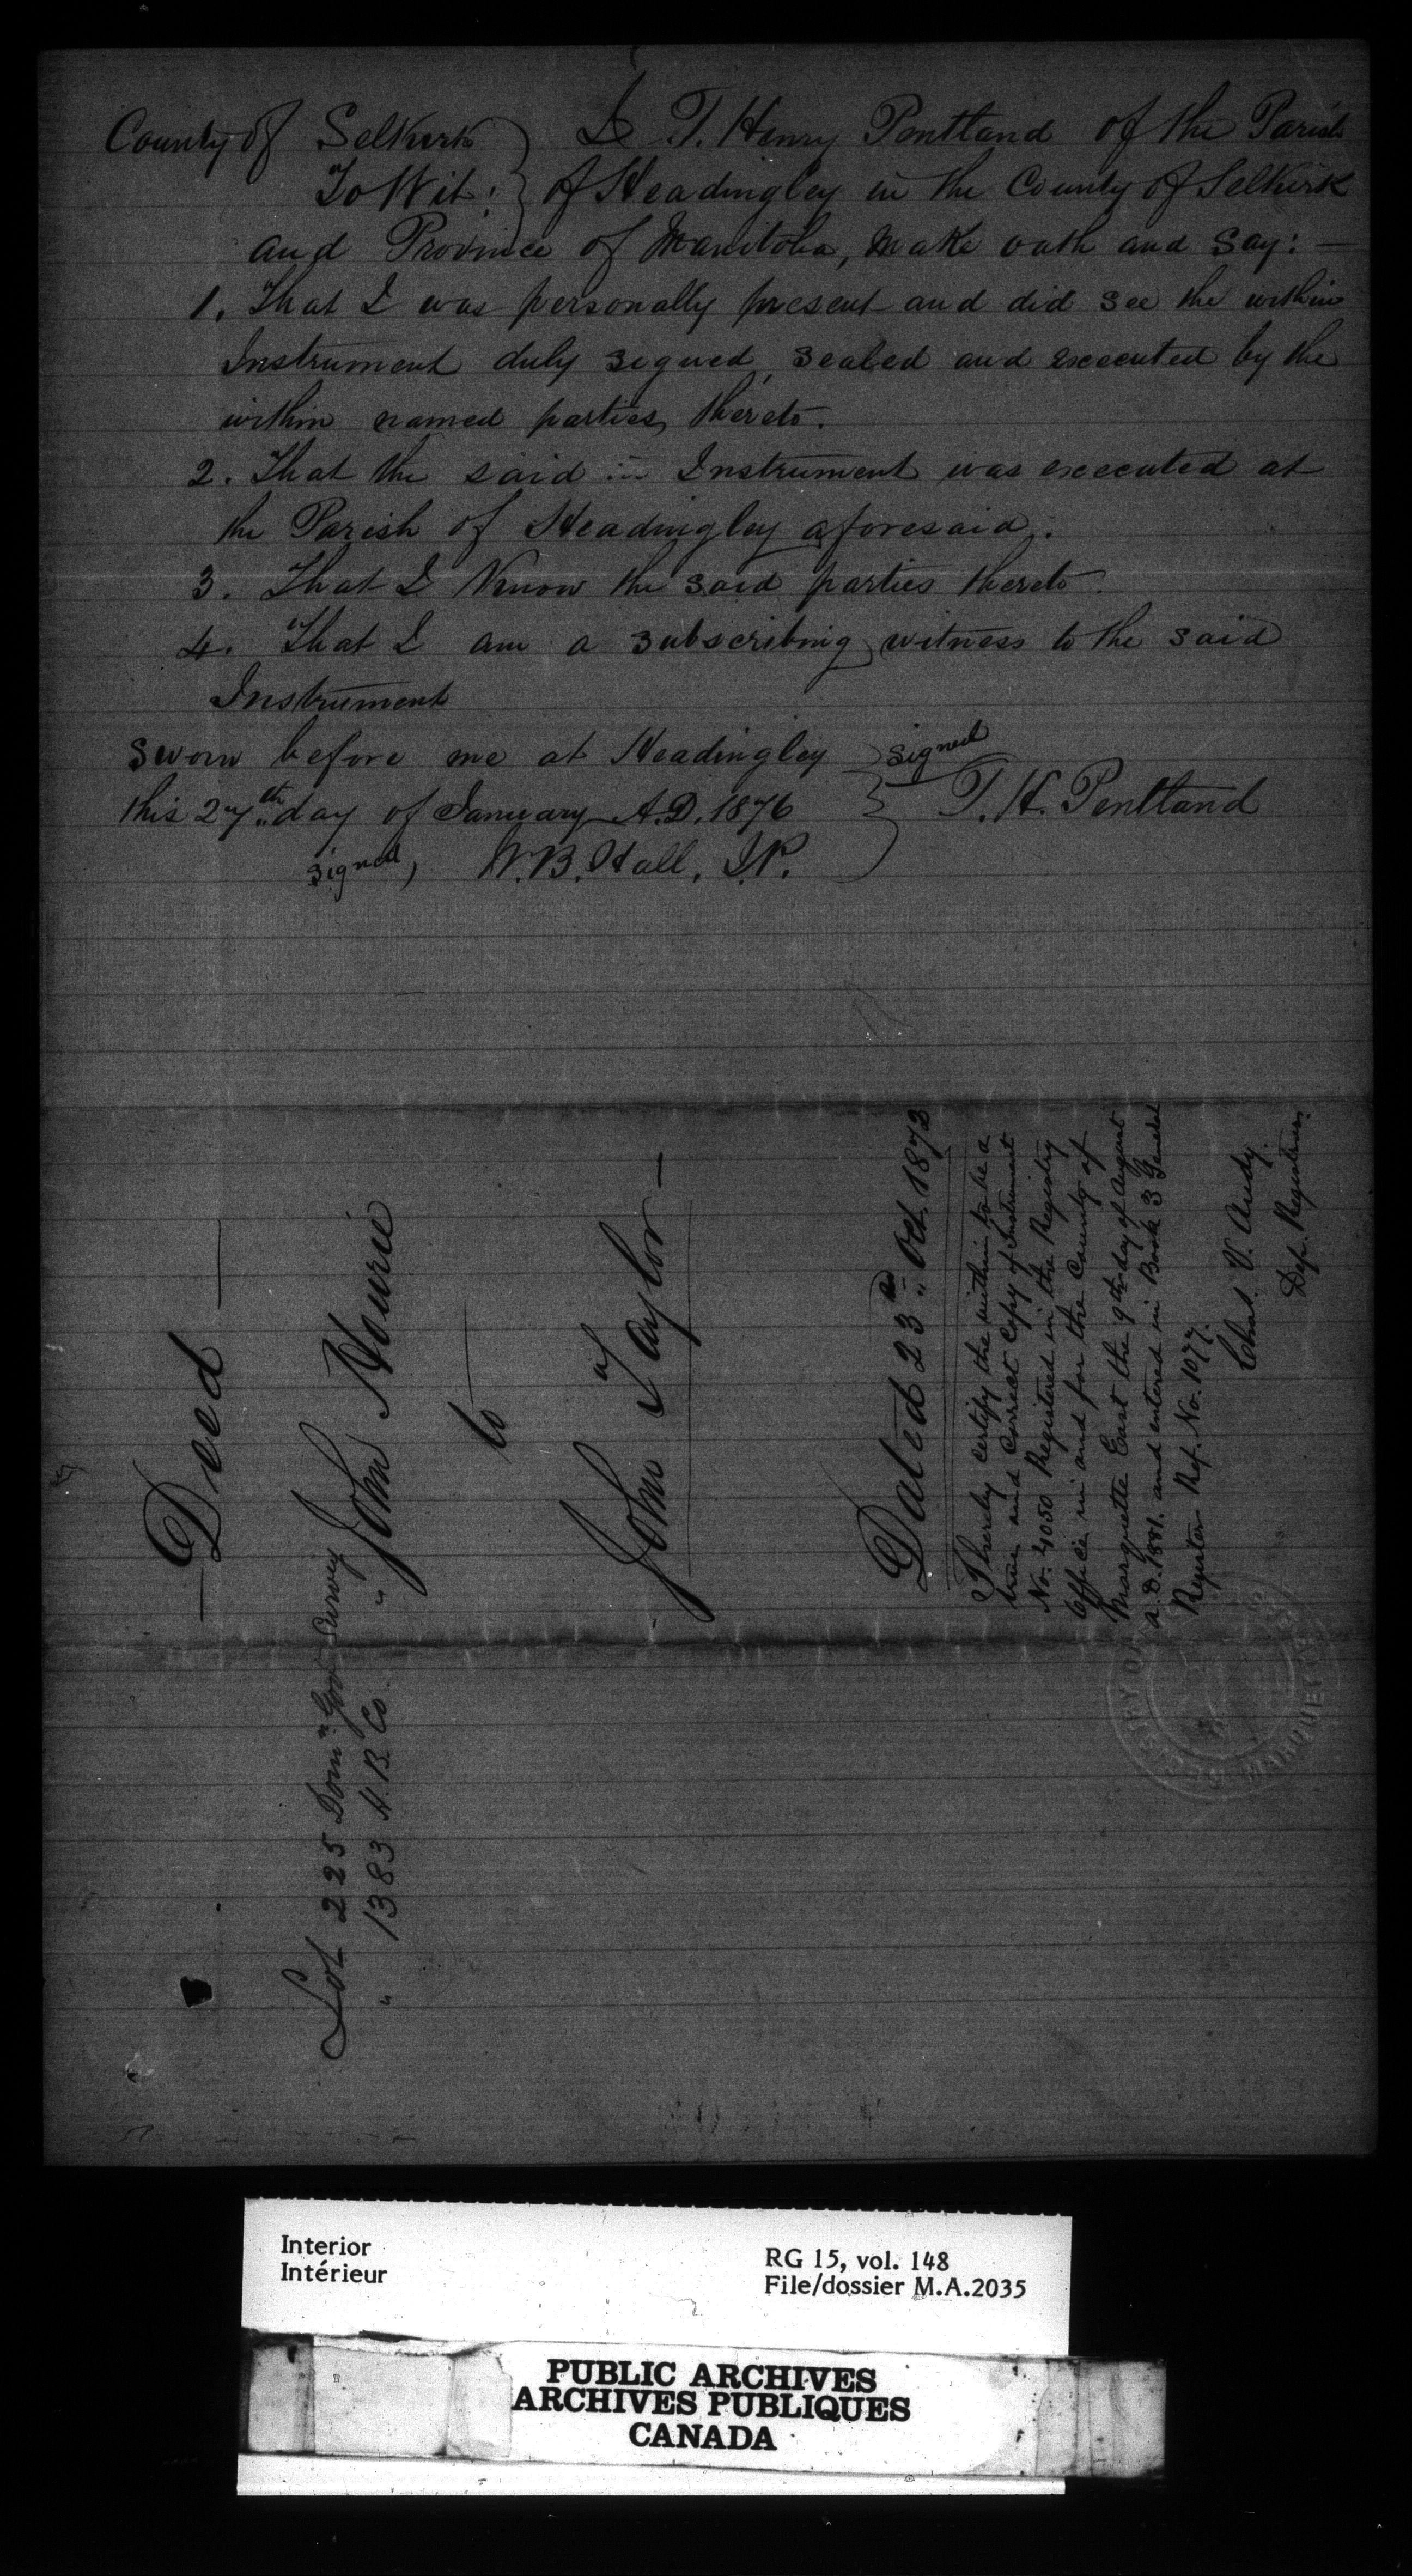 County of Selkirk } I T. Henry Pentland of the Parish
To Wit: } of Headingley in the County of Selkirk
and Province of Manitoba, make oath and say: —
1. That I was personally present and did see the within
Instrument duly signed, sealed and executed by the
within named parties thereto.
2. That the said Instrument was executed at
the Parish of Headingley aforesaid.
3. That I Know the said parties thereto.
4. That I am a subscribing witness to the said
Instrument
Sworn before me at Headingley } signed
this 27th day of January A.D. 1876 } T. H. Pentland
signed, W. B. Hall, J.P.
— Deed —
John Hourie
to
John Taylor —
Dated 23rd Oct. 1873
I hereby certify the within to be a
true and correct copy of Instrument
No. 4050 Registered in the Registry
Office in and for the County of
Marquette East the 9th day of August
A.D. 1881. and entered in Book 3 General
Register Ref. No. 1077.
Chas. V.
Dep. Registrar.
Lot 225 Domn Govt Survey
" 1383 H. B. Co. "
REGISTRY OF
MARQUETTE
Interior
Intérieur
RG 15, vol. 148
File/dossier M.A.2035
PUBLIC ARCHIVES
ARCHIVES PUBLIQUES
CANADA